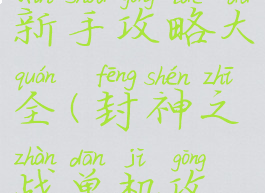 新手攻略大
quán fēng shén zhī
全(封神之
zhàn dān jī gōng
战单机攻